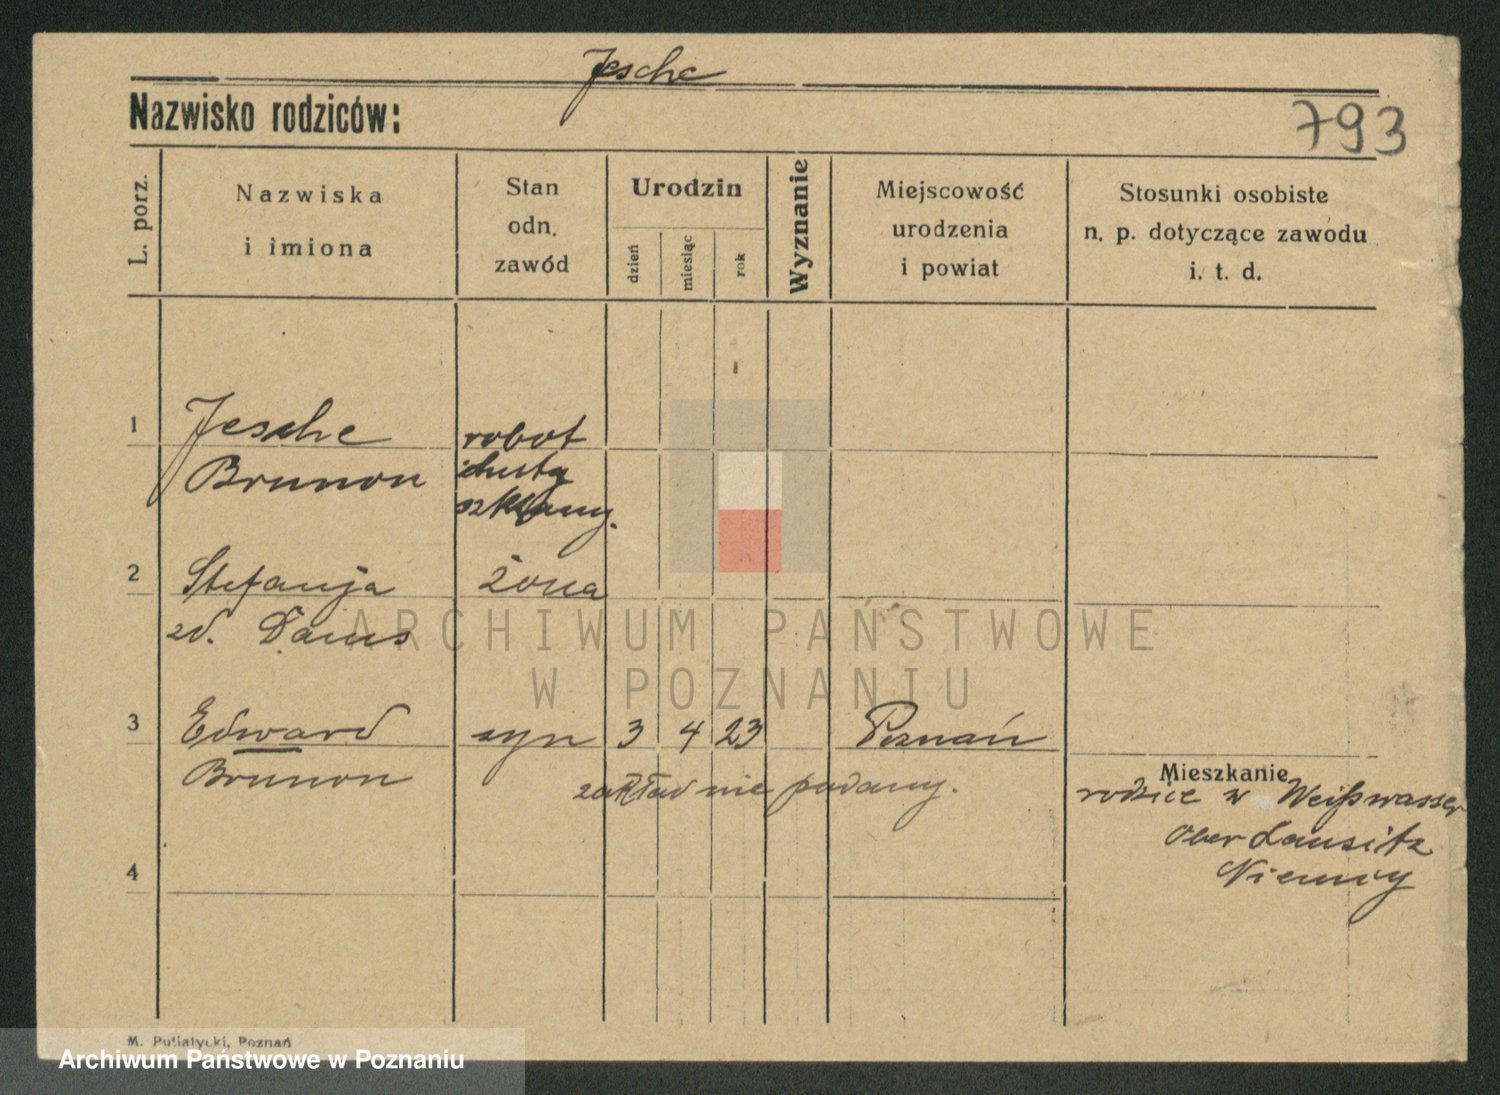 Jesche
Nazwisko rodziców:
793
L. porz.
Nazwiska
i imiona
Stan
odn.
zawód
Urodzin
dzień
miesiąc
rok
Wyznanie
Miejscowość
urodzenia
i powiat
Stosunki osobiste
n. p. dotyczące zawodu
i. t. d.
1
Jesche
robot
Brunon
huty
szklany.
2
Stefanja
żona
zd. Danus
3
Edward
syn
3
4
23
Poznań
Brunon
zakład nie podany.
Mieszkanie
rodzice w Weißwasser
Ober Lausitz
Niemcy
4
ARCHIWUM PAŃSTWOWE
W POZNANIU
M. Putiatycki, Poznań
Archiwum Państwowe w Poznaniu